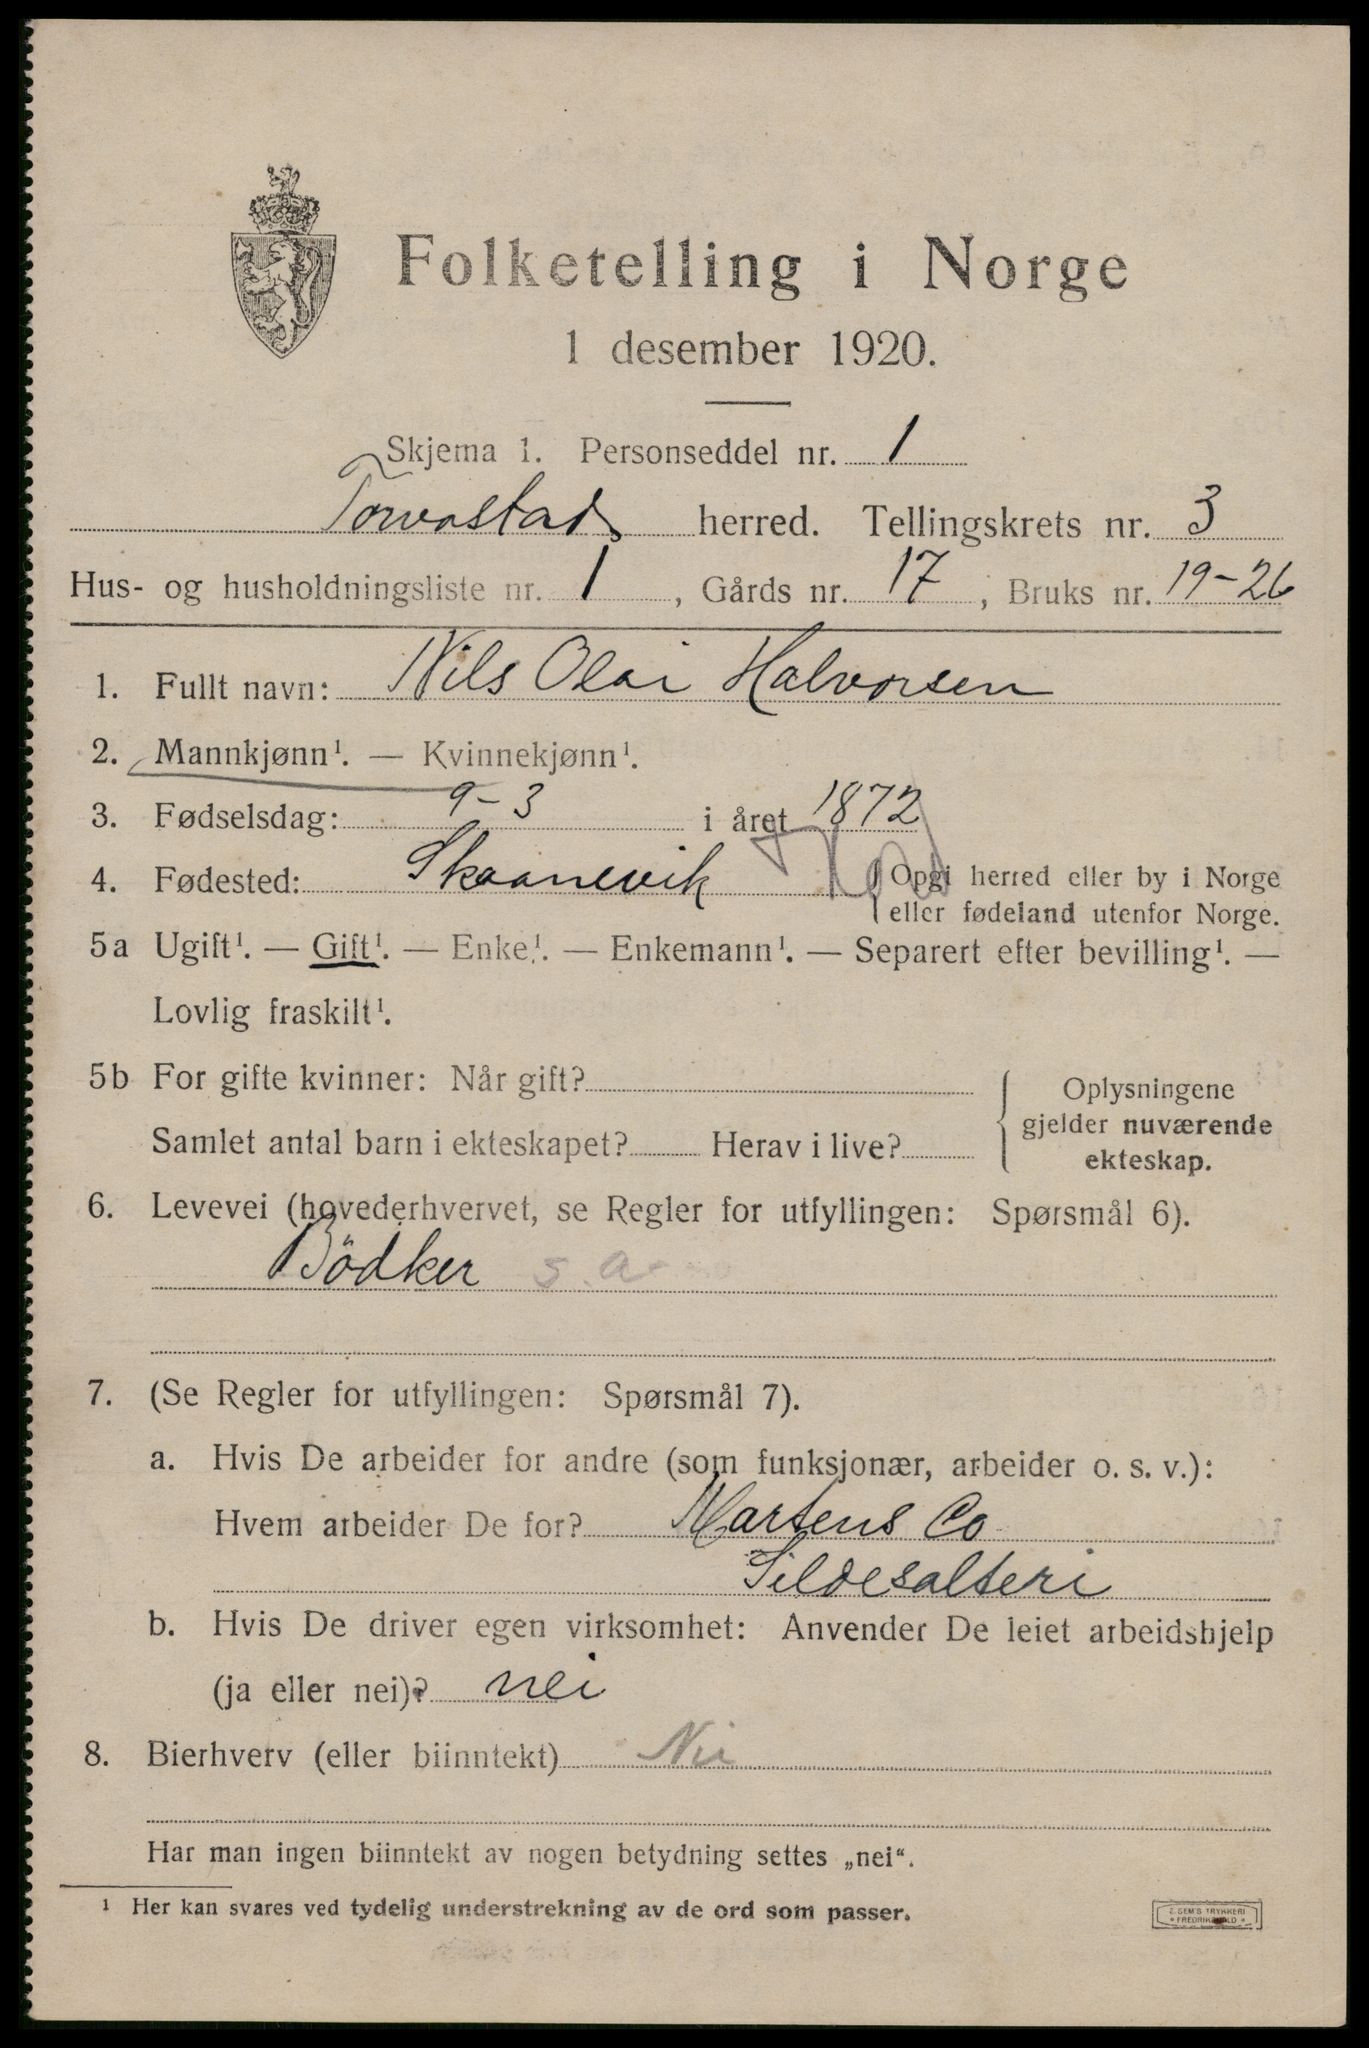 Folketelling i Norge
1 desember 1920.
Skjema 1. Personseddel nr. 1
Torvastad herred. Tellingskrets nr. 3
Hus- og husholdningsliste nr. 1, Gårds nr. 17, Bruks nr. 19-26
1. Fullt navn: Nils Olai Halvorsen
2. Mannkjønn¹. — Kvinnekjønn¹.
3. Fødselsdag: 9-3 i året 1872
4. Fødested: Skaanevik Hord
Opgi herred eller by i Norge
eller fødeland utenfor Norge.
5a Ugift¹. — Gift¹. — Enke¹. — Enkemann¹. — Separert efter bevilling¹. —
Lovlig fraskilt¹.
5b For gifte kvinner: Når gift?
Samlet antal barn i ekteskapet? Herav i live?
Oplysningene
gjelder nuværende
ekteskap.
6. Levevei (hovederhvervet, se Regler for utfyllingen: Spørsmål 6).
Bödker s.a.
7. (Se Regler for utfyllingen: Spørsmål 7).
a. Hvis De arbeider for andre (som funksjonær, arbeider o. s. v.):
Hvem arbeider De for? Martens Co
Sildesalteri
b. Hvis De driver egen virksomhet: Anvender De leiet arbeidshjelp
(ja eller nei)? nei
8. Bierhverv (eller biinntekt) Nei
Har man ingen biinntekt av nogen betydning settes „nei“.
¹ Her kan svares ved tydelig understrekning av de ord som passer.
E. SEM'S TRYKKERI
FREDRIKSHALD